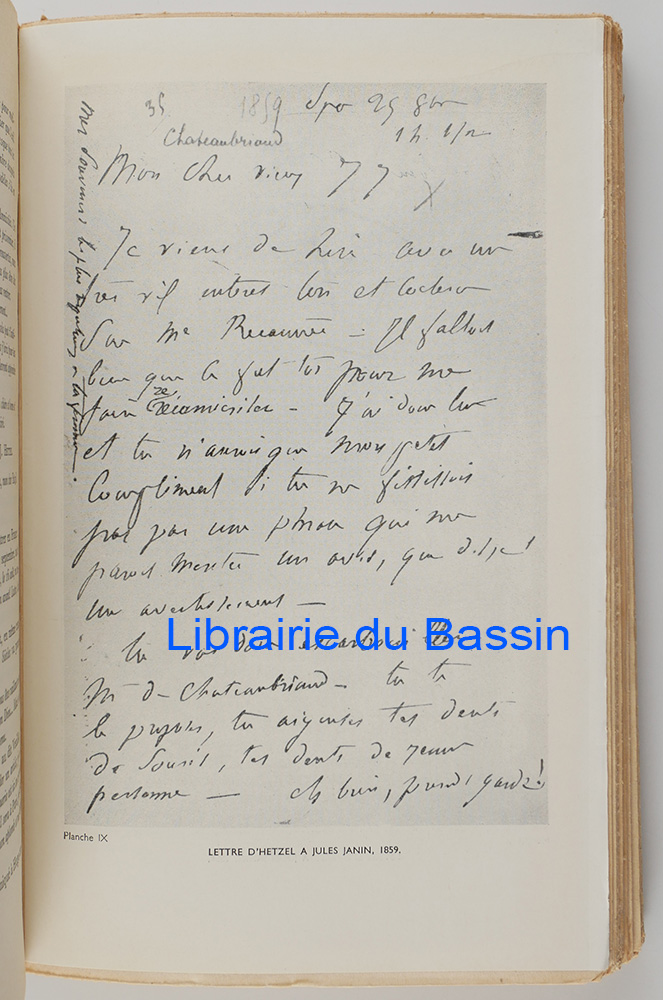 35 1859 Spa 25 9bre
Chateaubriand 1 h. 1/2
Mon cher vieux J J
Je viens de lire avec un
très vif intérêt ton et
Sur Me Recamier - Il fallait
bien que ce fut toi pour me
faire - J'ai donc lu
et tu n'aurais que mon petit
Compliment si tu ne finissais
pas par une phrase qui me
parait mériter un avis, que dis-je!
un avertissement -
tu vas donc
Mr de Chateaubriand - tu te
le proposes, tu aiguises tes dents
de Souris, tes dents de jeune
personne - eh bien, prends garde!
Mes Souvenirs les plus à ta femme.
Librairie du Bassin
Planche IX
LETTRE D'HETZEL A JULES JANIN, 1859.